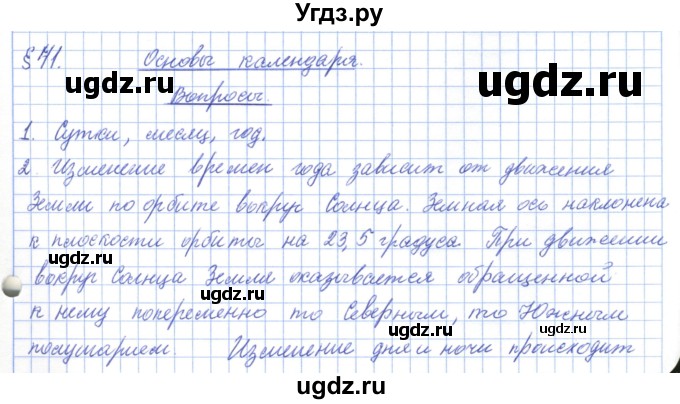 Угдз.ру
§ 71. Основы календаря.
Вопросы.
1. Сутки, месяц, год.
2. Изменение времен года зависит от движения
Земли по орбите вокруг Солнца. Земная ось наклонена
к плоскости орбиты на 23,5 градуса При движении
вокруг Солнца Земля оказывается обращенной
к нему попеременно то Северным, то Южным
полушарием. Изменение дня и ночи происходит
ugdz.ru
ugdz.ru
ugdz.ru
ugdz.ru
ugdz.ru
ugdz.ru
ugdz.ru
ugdz.ru
ugdz.ru